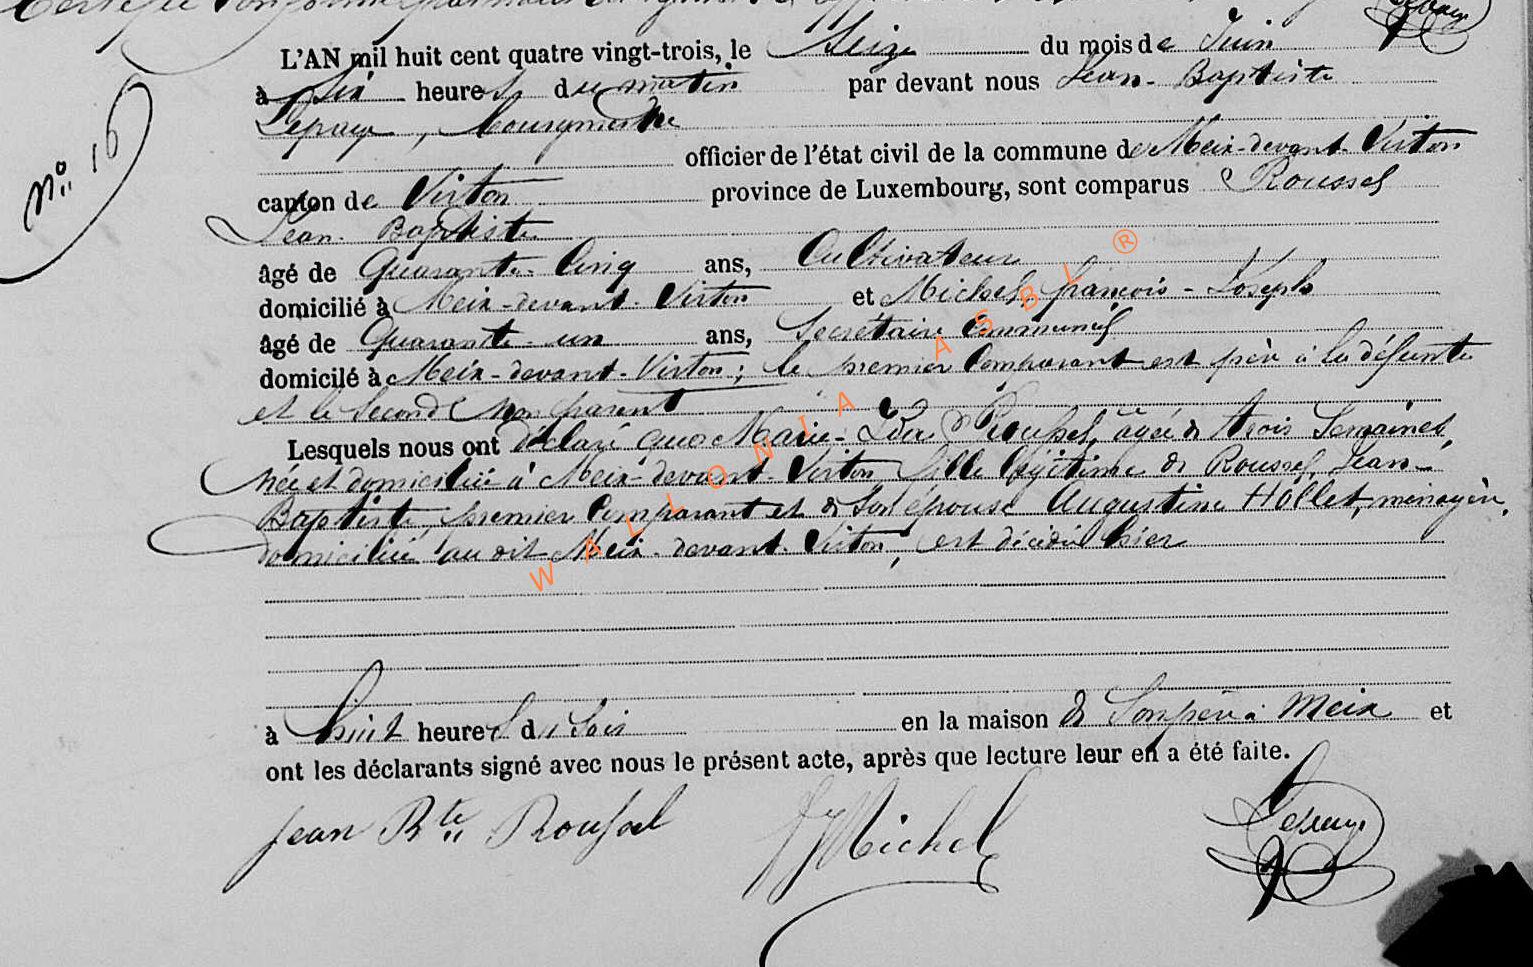 L'AN mil huit cent quatre vingt-trois, le Seize du mois de Juin
à Six heures du matin par devant nous Jean-Baptiste
Lepage, Bourgmestre
officier de l'état civil de la commune de Meix-devant-Virton
N° 16
canton de Virton province de Luxembourg, sont comparus Roussel
Jean Baptiste
âgé de Quarante-Cinq ans, Cultivateur
domicilié à Meix-devant-Virton et Michel françois-Joseph
âgé de Quarante-un ans, Secrétaire Communal
domicilé à Meix-devant-Virton; le premier Comparant est père à la défunte
et le Second non parent
Lesquels nous ont déclaré que Marie-Ida Roussel, âgée de trois Semaines,
née et domiciliée à Meix-devant-Virton, fille légitime de Roussel, Jean-
Baptiste, premier Comparant et de Son épouse Augustine Hollet, ménagère,
domiciliée au dit Meix-devant-Virton, est décédée hier
à huit heures du Soir en la maison de Son père à Meix et
ont les déclarants signé avec nous le présent acte, après que lecture leur en a été faite.
Jean Bte Roussel Michel Lepage
WALLONIA ASBL ®